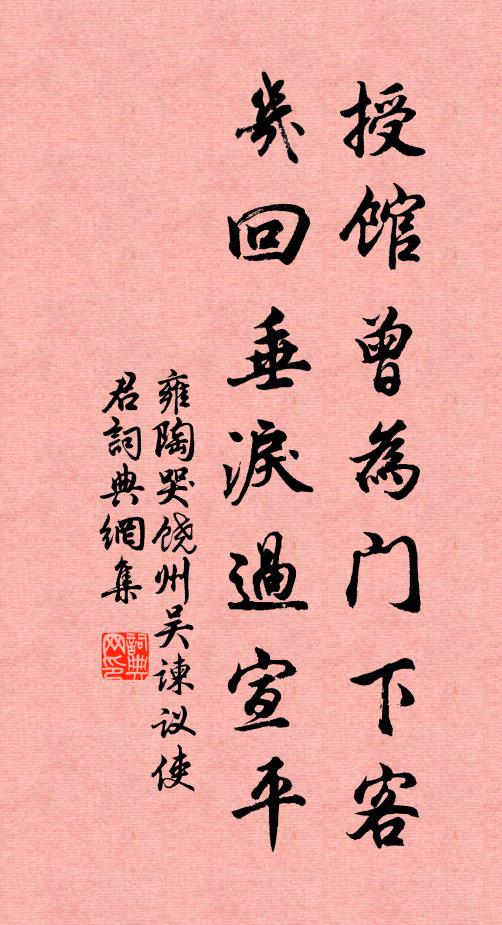 授馆曾为门下客
几回垂淚過宣平
雍陶哭饶州吴谏议使
君詞典網集
詞典网印